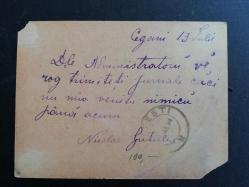 Cegani 13 Iulie
Dle Administratoru vĕ
rog trimiteți jurnale căci
nu mia venitu nimicu
până acum
Nicolae
100